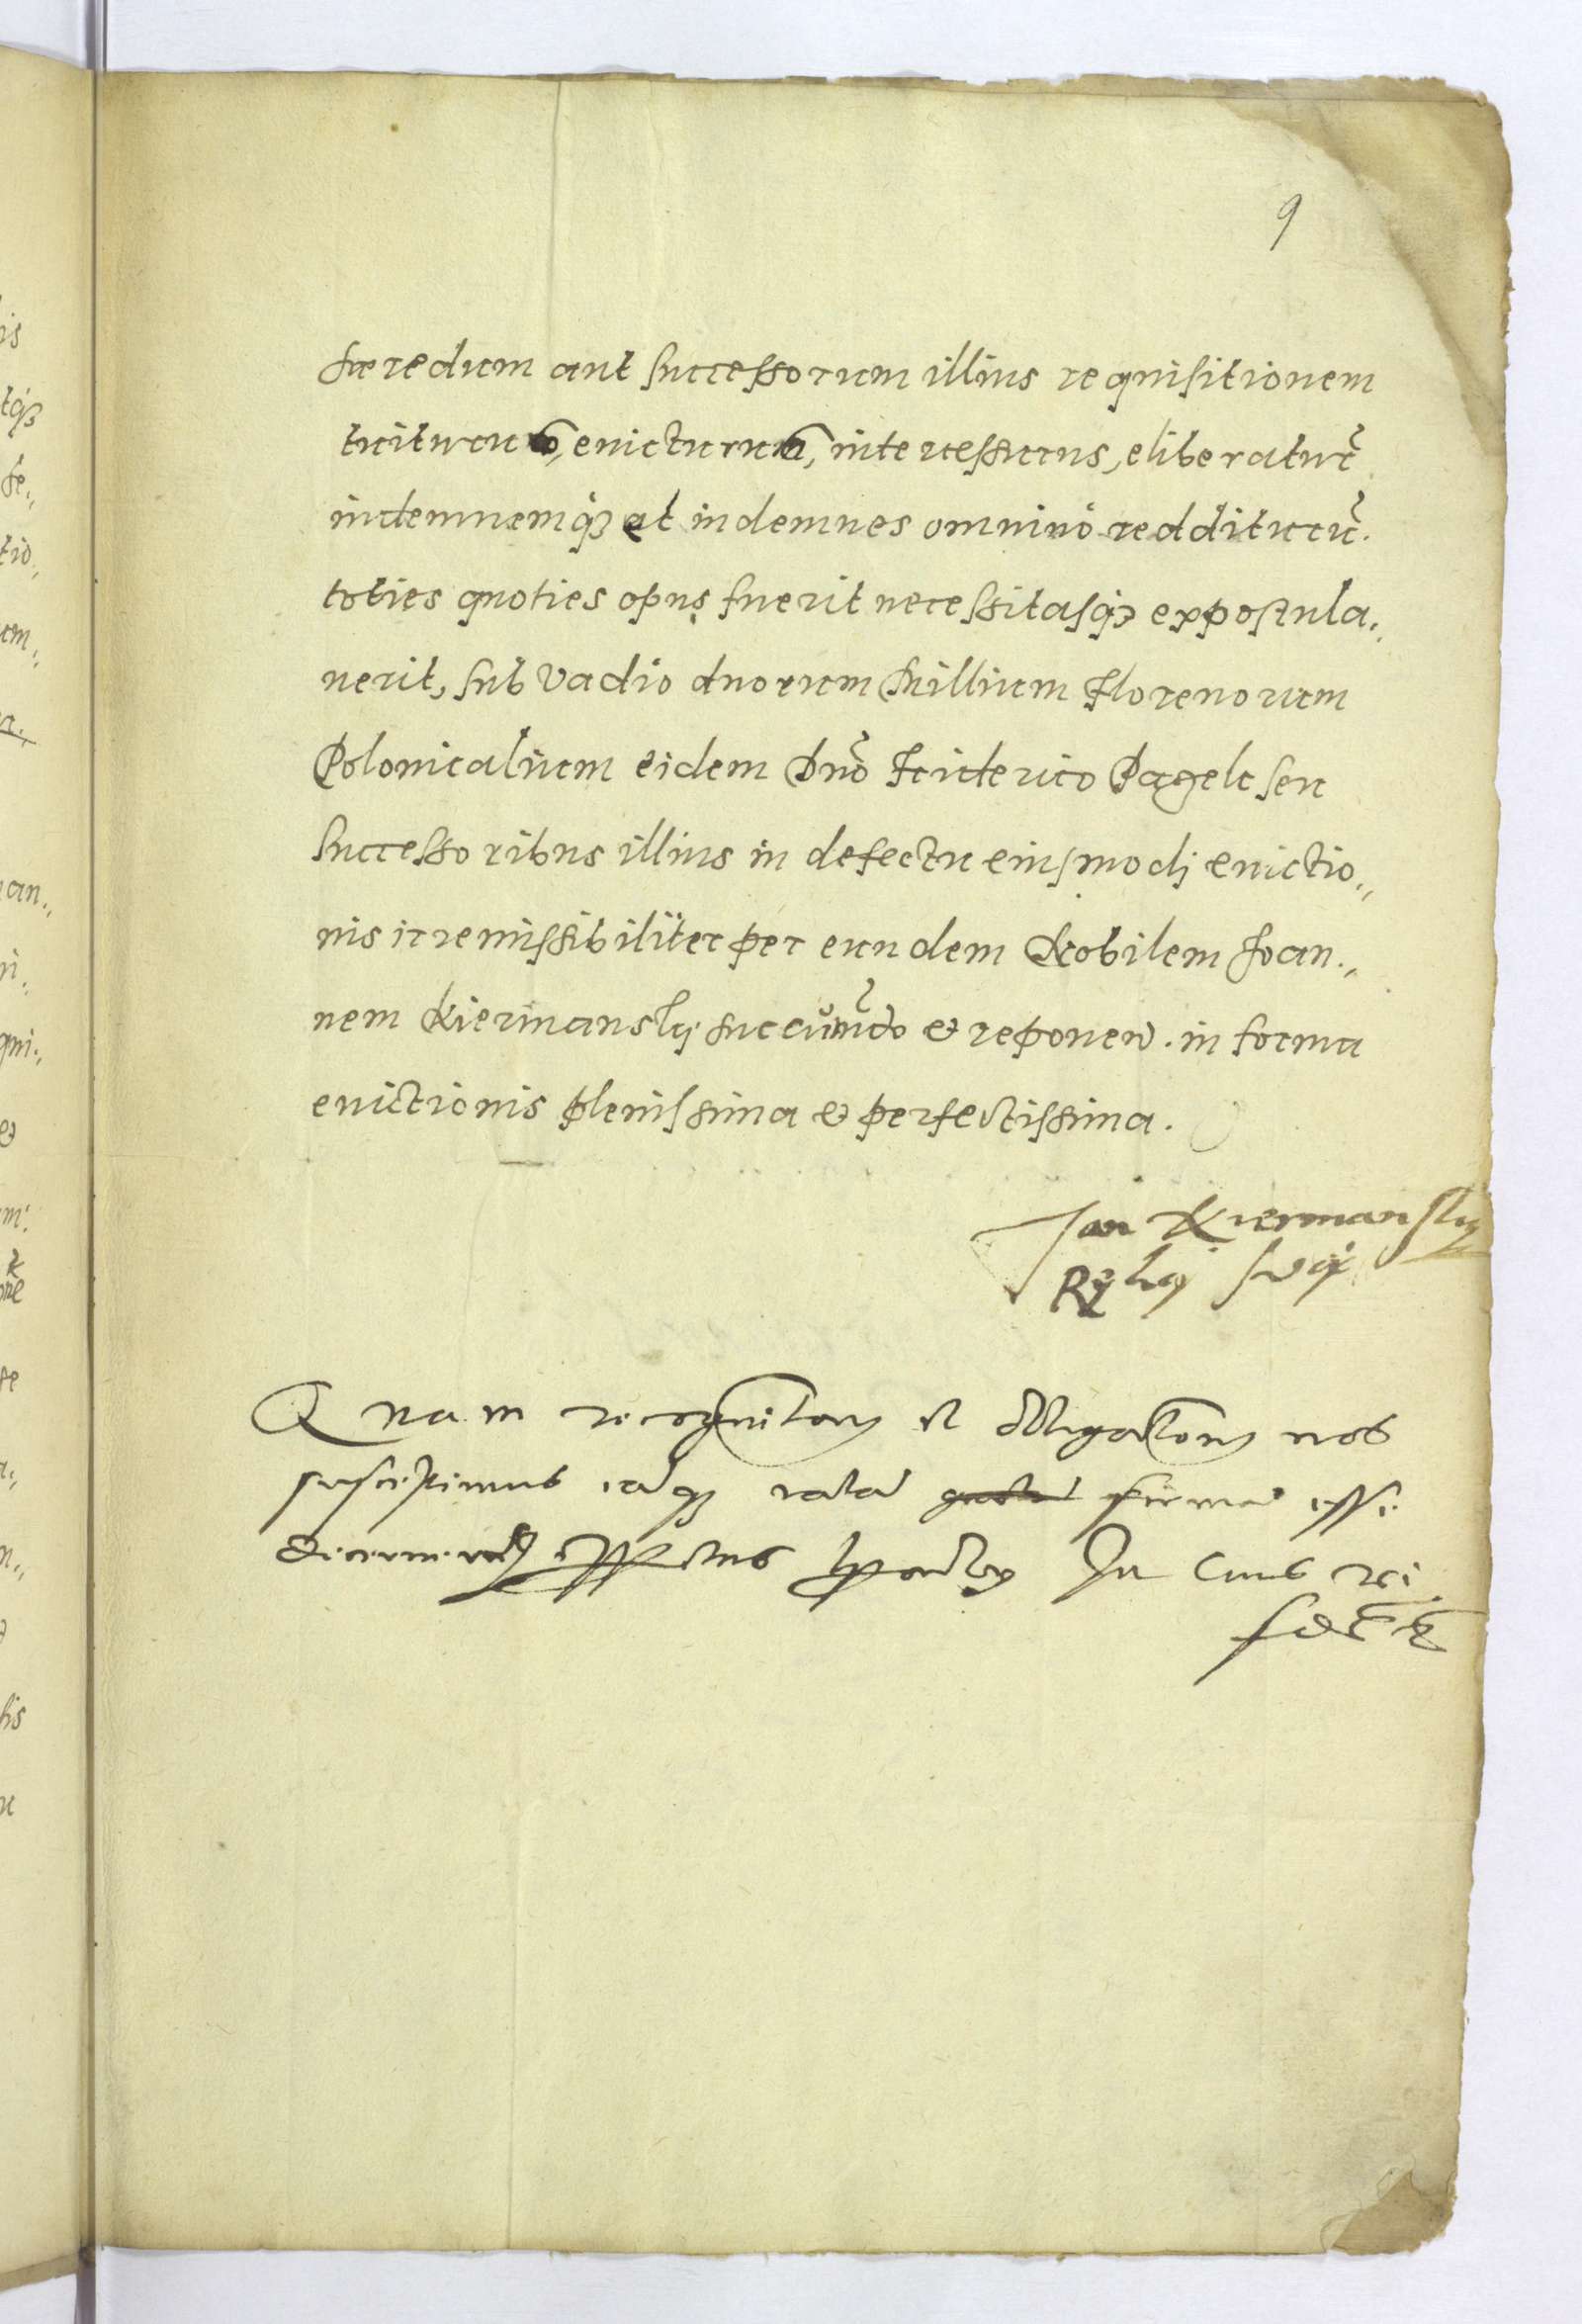 9
hæredum aut successorum illius requisitionem
tuiturum, evicturum, intercessurus, eliberaturũ
indemnemq₃ et indemnes omninò redditurũ.
toties quoties opus fuerit necessitasq₃ expostula„
verit, sub vadio duorum Millium Florenorum
Polonicalium eidem Dnõ Friderico Pagelt seu
successoribus illius in defectu eiusmodj evictio„
nis irremissibiliter per eundem Nobilem Joan„
nem Kiermanskj succũbendo & reponen. in forma
evictionis plenissima & perfectissima.
Jan Kiermansky
Ręką swą
Quam recognitionem et obligationem nos
suscepimus eamq₃ ratam firmam esse
decernimus In cuius rei
fidem